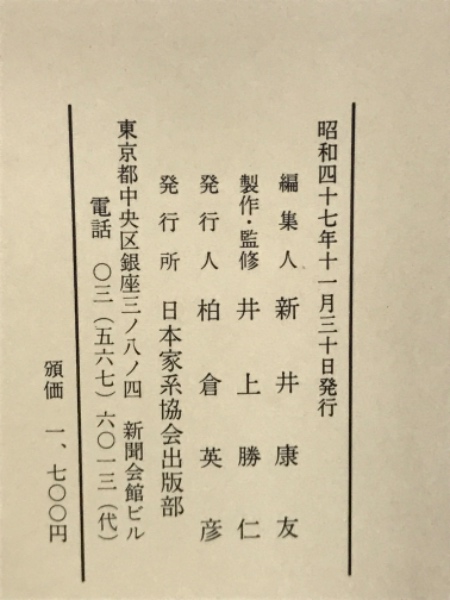 昭和四十七年十一月三十日発行
編集人 新井康友
製作・監修 井上勝仁
発行人 柏倉英彦
発行所 日本家系協会出版部
東京都中央区銀座三ノ八ノ四 新聞会館ビル
電話 〇三(五六七)六〇一三(代)
頒価 一、七〇〇円